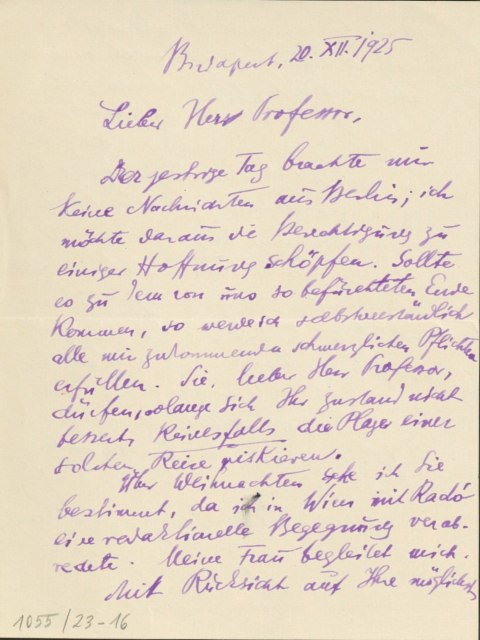 Budapest, 20. XII. 1925
Lieber Herr Professor,
Der gestrige Tag brachte mir
keine Nachrichten aus Berlin; ich
möchte daraus die Berechtigung zu
einiger Hoffnung schöpfen. Sollte
es zu dem von uns so befürchteten Ende
kommen, so werde ich selbstverständlich
alle mir zukommenden schmerzlichen Pflichten
erfüllen. Sie, lieber Herr Professor,
dürfen, solange sich Ihr Zustand nicht
bessert, keinesfalls die Plage einer
solchen Reise riskieren.
Über Weihnachten sehe ich Sie
bestimmt, da ich in Wien mit Radó
eine redaktionelle Begegnung verab-
redete. Meine Frau begleitet mich.
Mit Rücksicht auf Ihre möglichst
1055/23-16